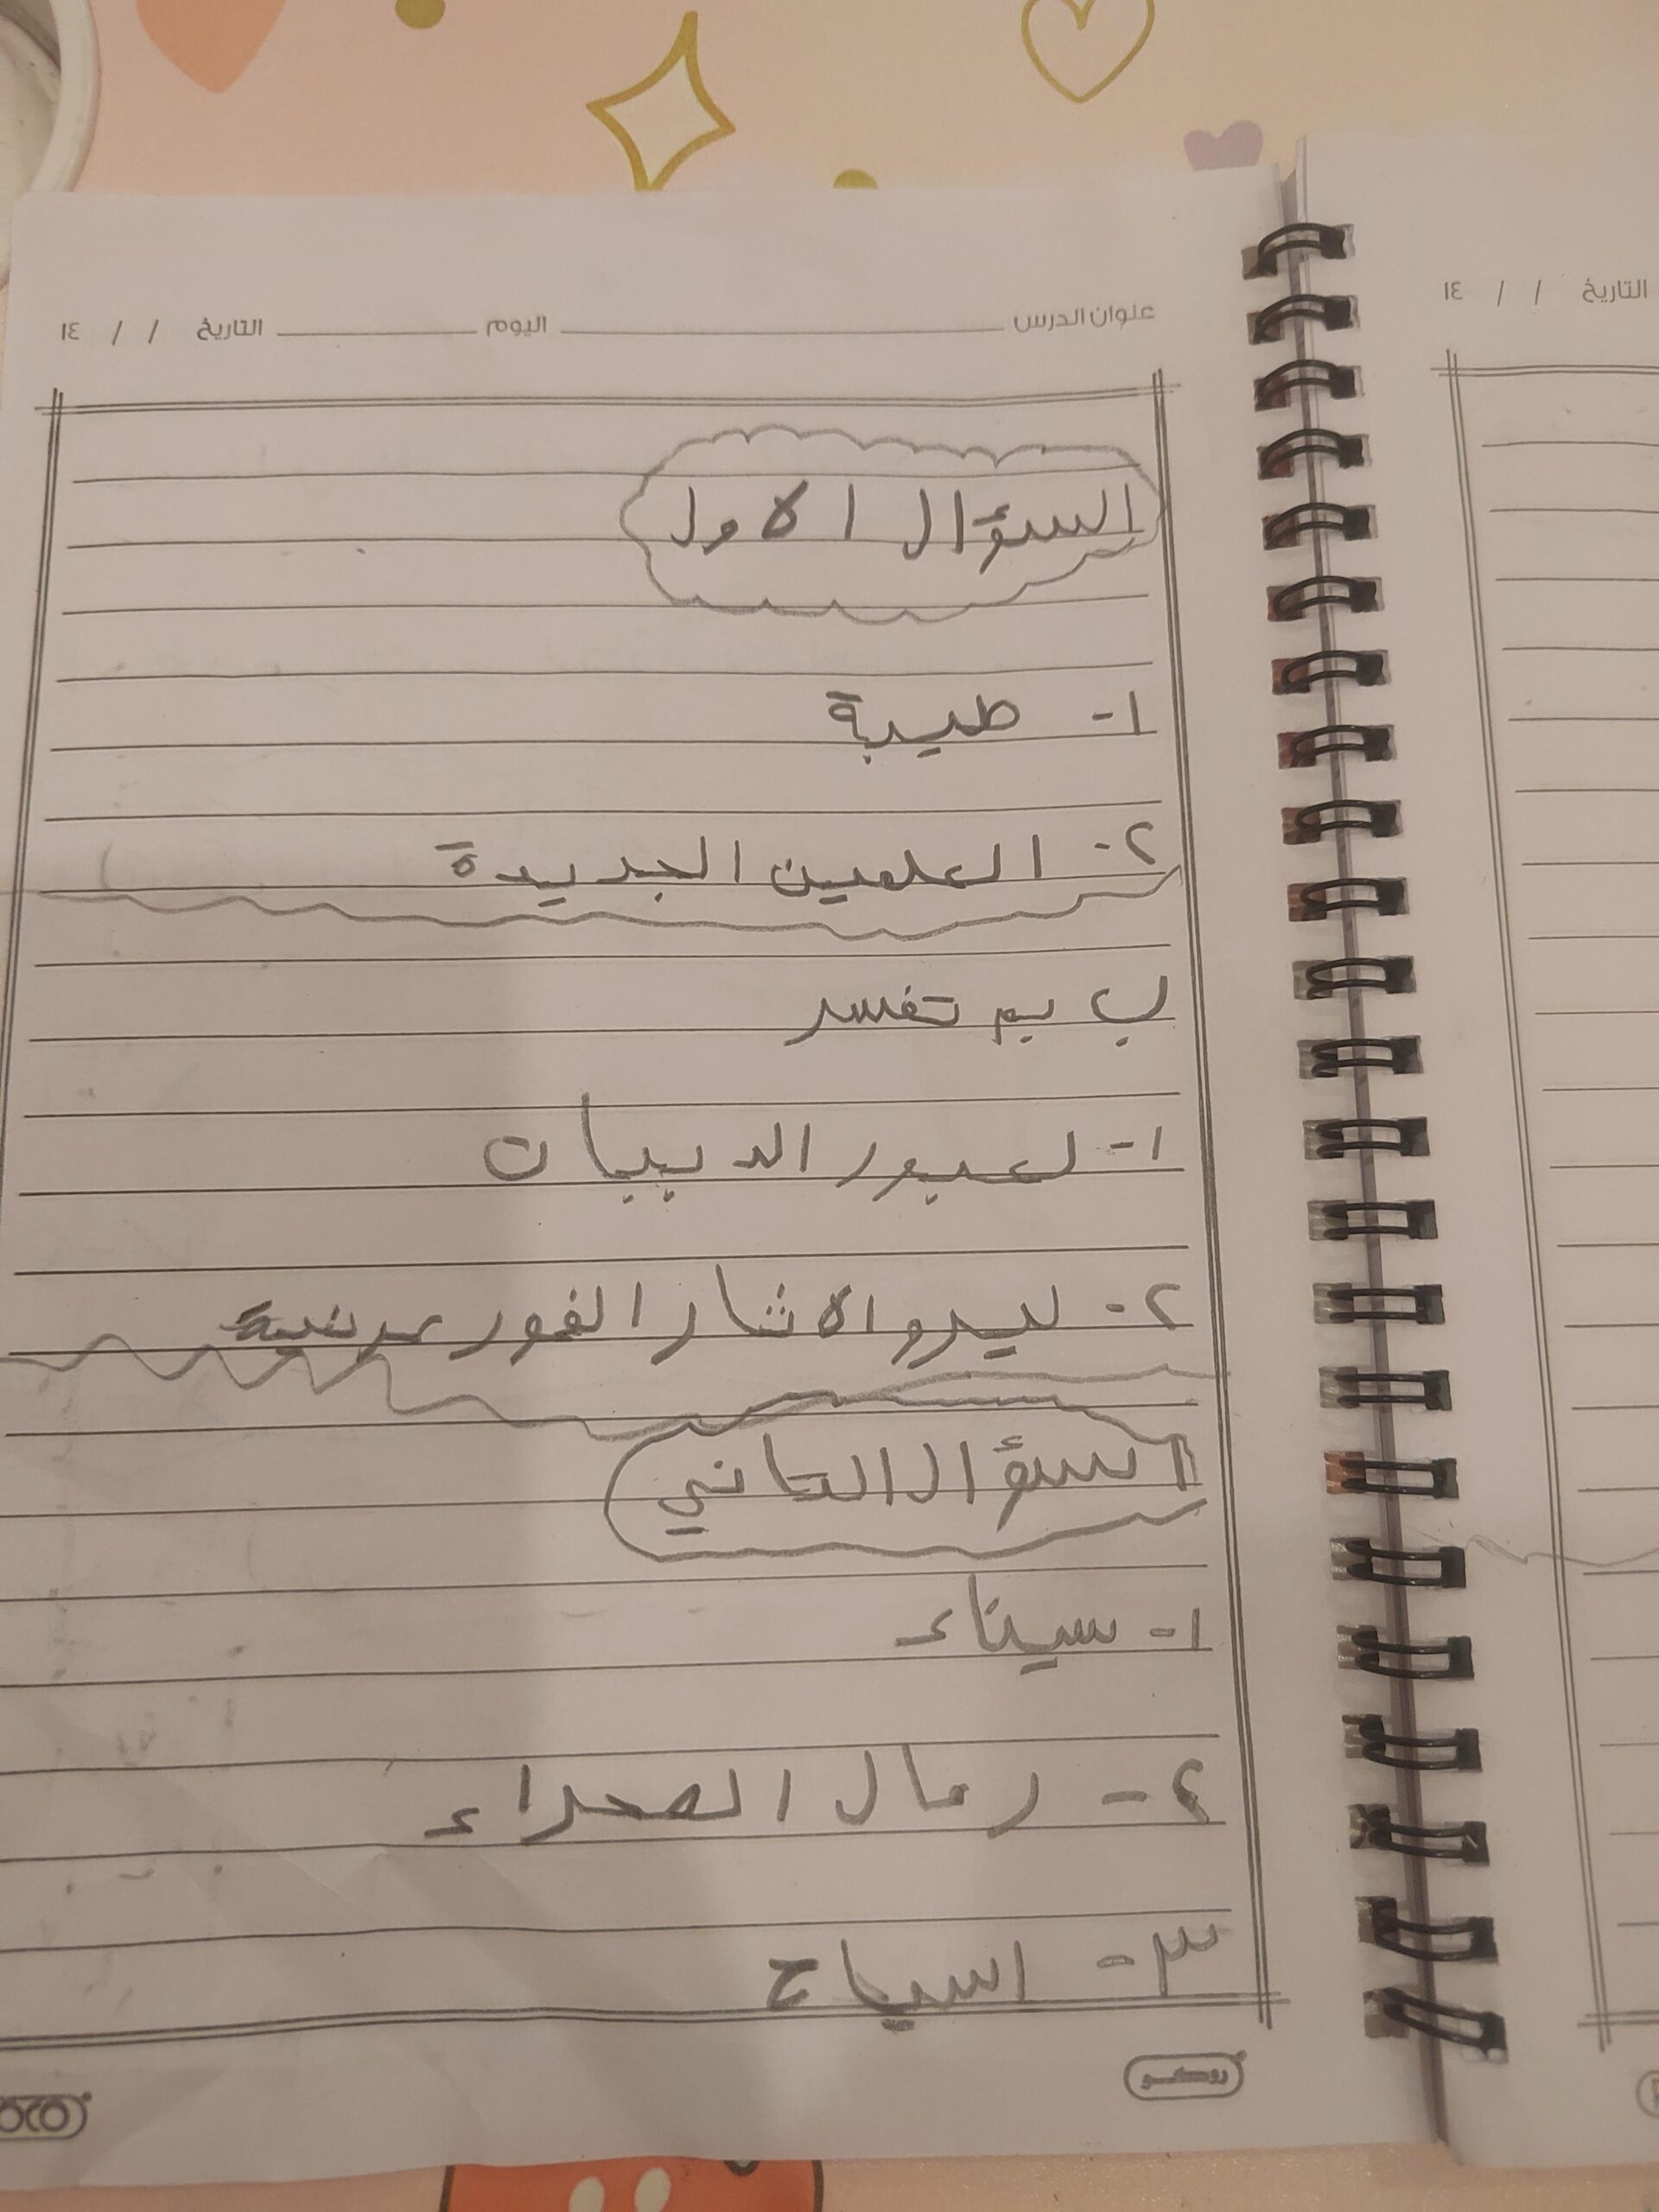 عنوان الدرس اليوم التاريخ / / ١٤
التاريخ / / ١٤
السؤال الاول
١- طيبة
٢- العلمين الجديدة
ب بم تفسر
١- لعبور الدبيان
٢- ليرو الاثار الفورعونية
السؤال التاني
١- سيناء
٢- رمال الصحراء
٣- اسياح
روكو